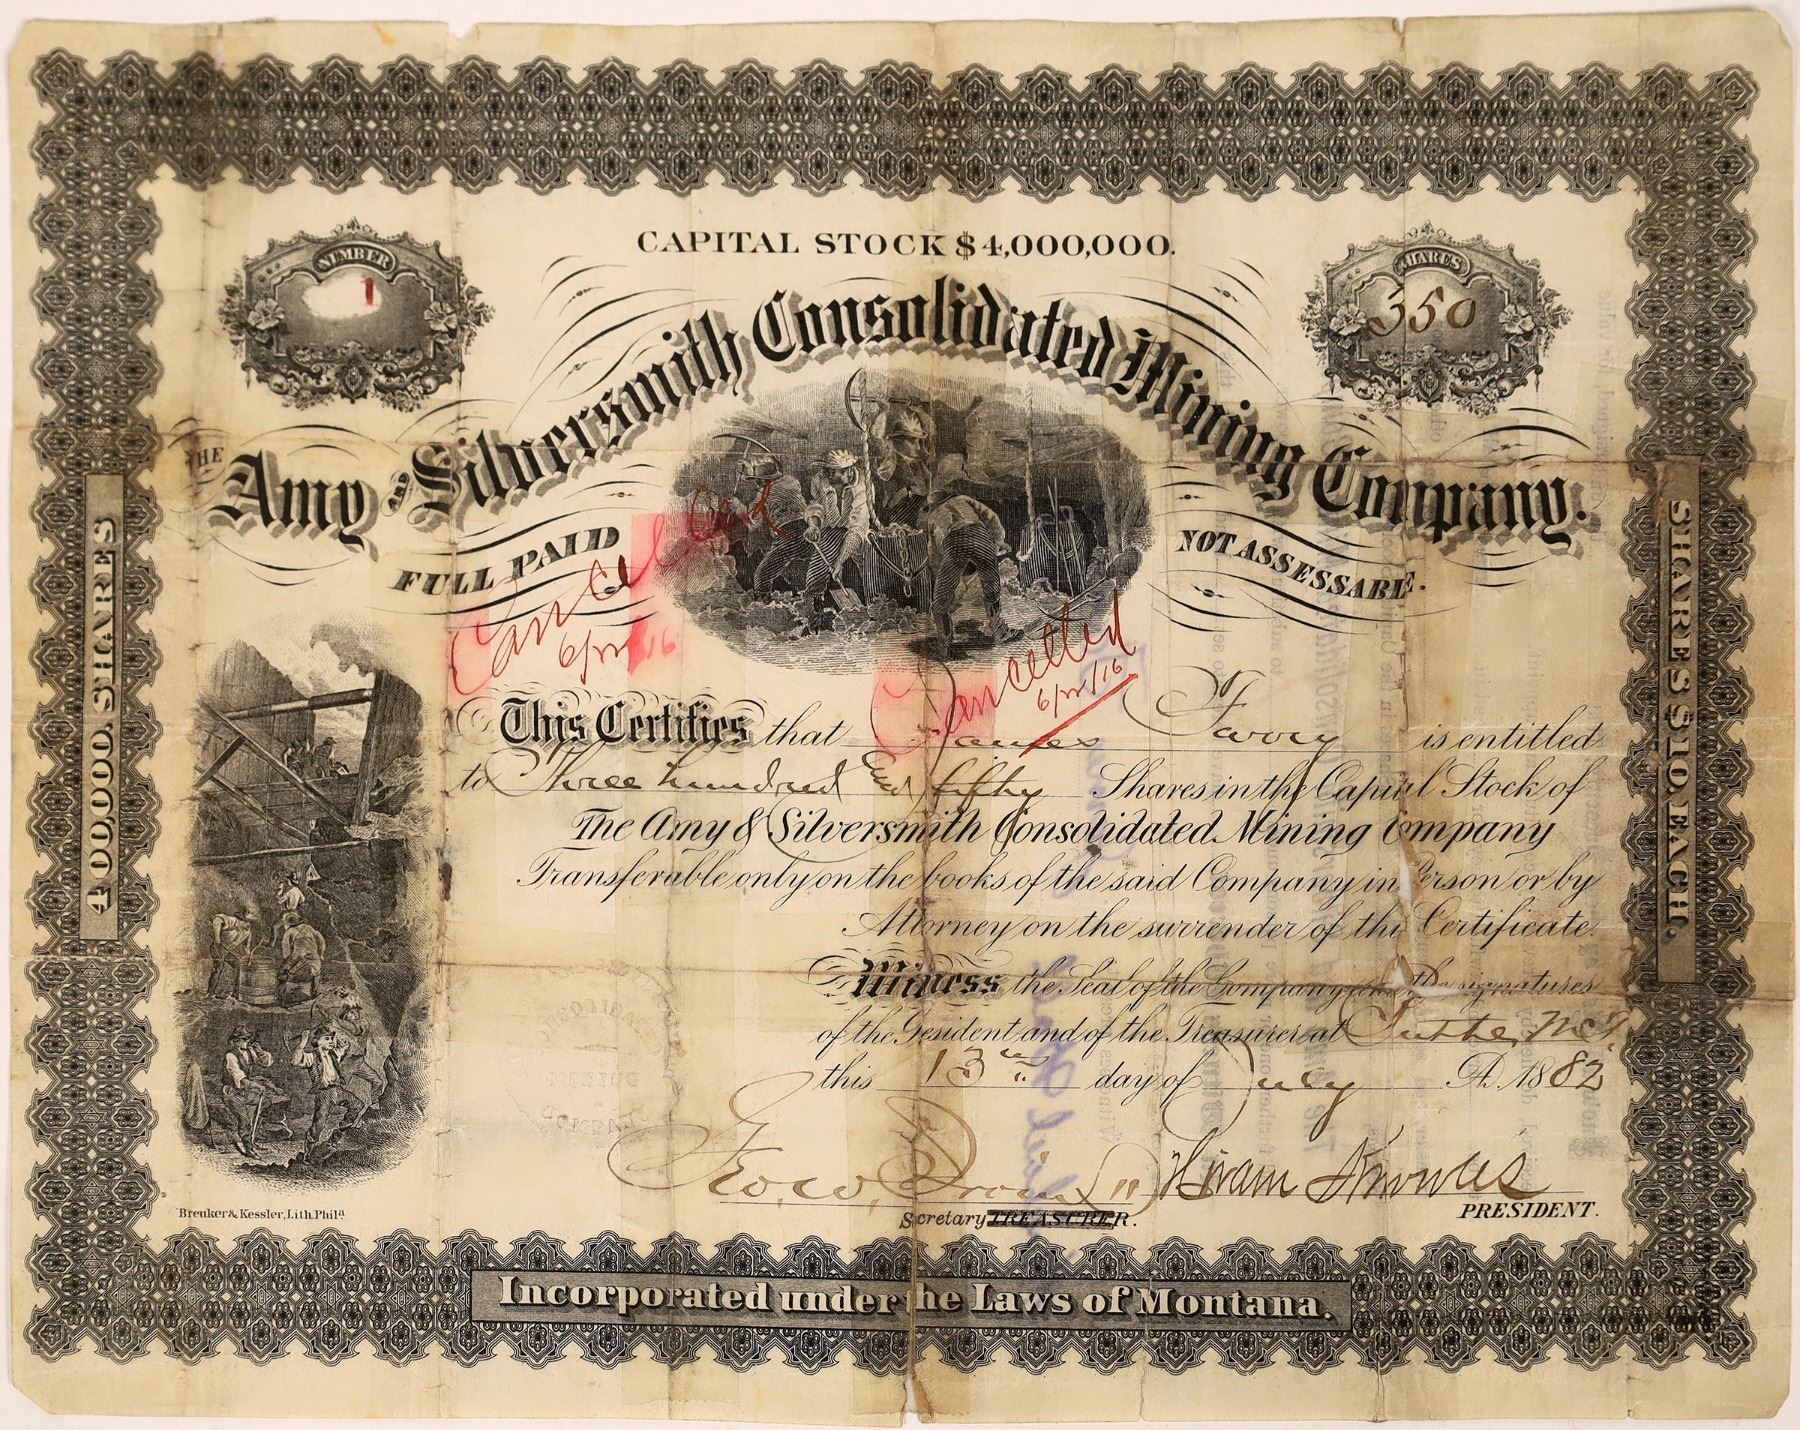 CAPITAL STOCK $4,000,000.
NUMBER
1
SHARES
350
THE Amy AND Silversmith Consolidated Mining Company.
FULL PAID
NOT ASSESSABLE.
Cancelled
6/22/16
Cancelled
6/22/16
400,000. SHARES
SHARES $10, EACH.
This Certifies that James is entitled
to Three hundred and fifty Shares in the Capital Stock of
The Amy & Silversmith Consolidated Mining Company
Transferable only on the books of the said Company in Person or by
Attorney on the surrender of this Certificate.
Witness the Seal of the Company and the signatures
of the President and of the Treasurer at Butte, M.T.
this 13th day of July A.D. 1882
Geo. W. Irvin II Hiram Knowles
Secretary TREASURER. PRESIDENT.
Breuker & Kessler, Lith. Phila.
Incorporated under the Laws of Montana.